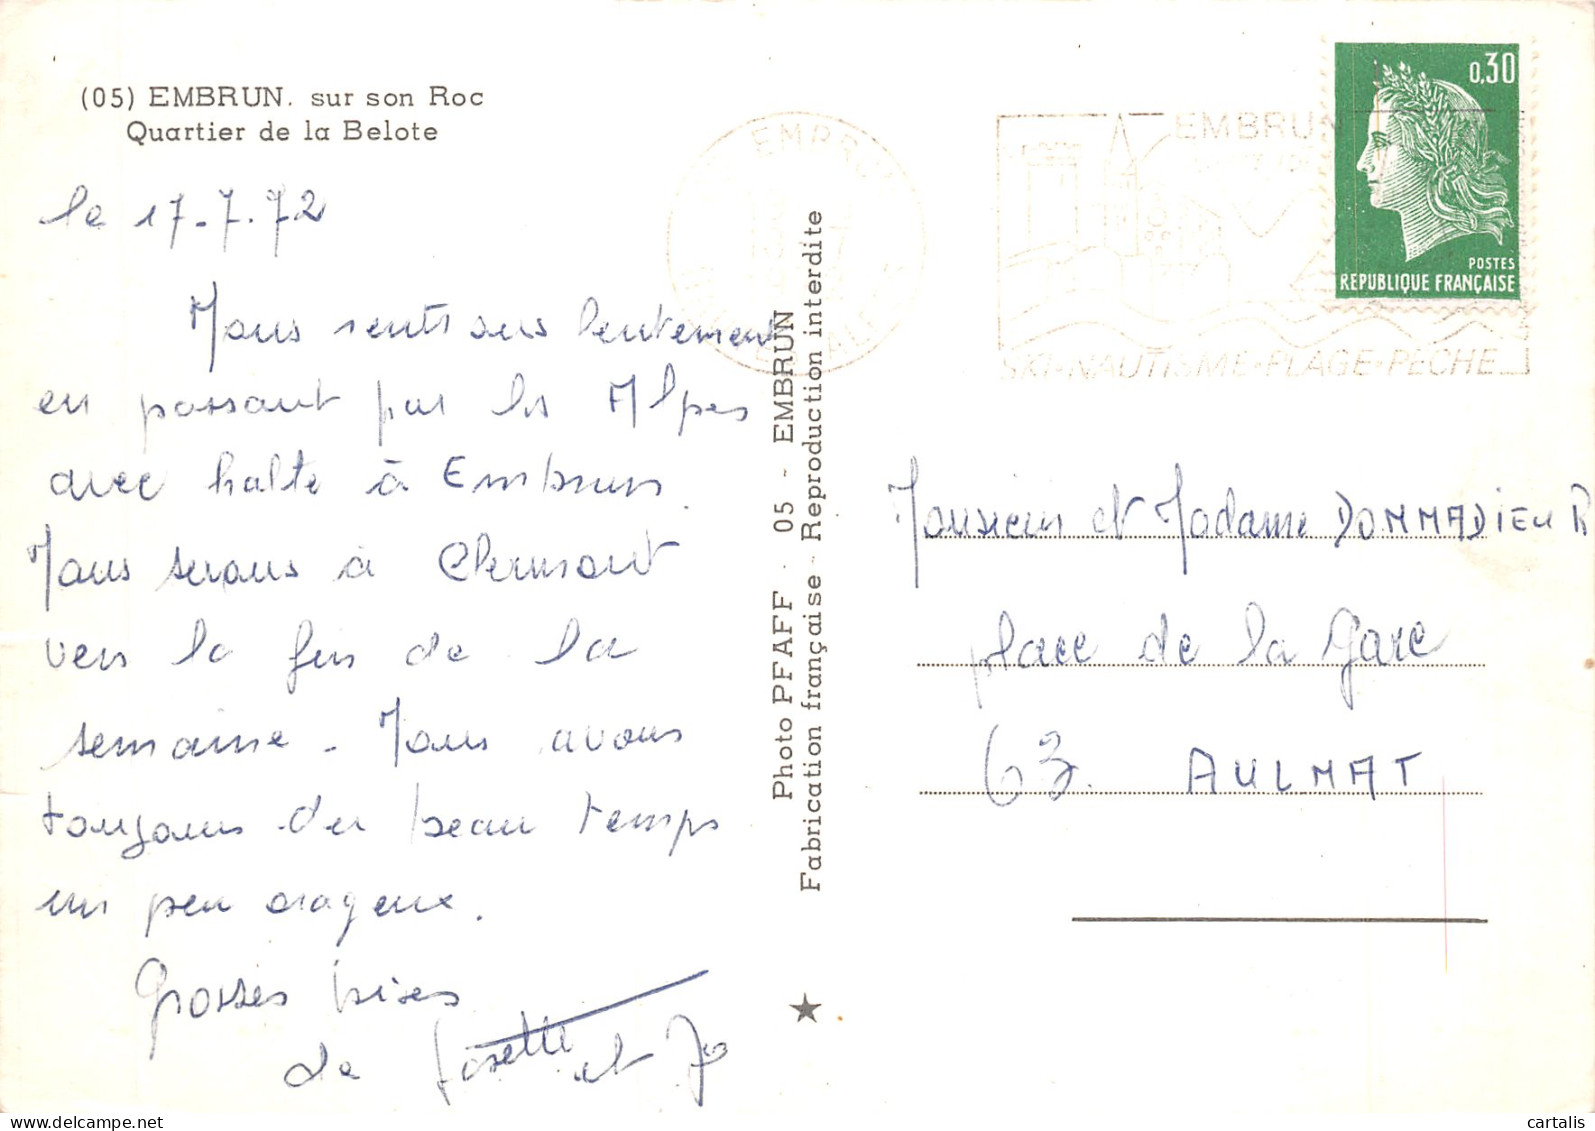 (05) EMBRUN. sur son Roc
Quartier de la Belote
le 17.7.72
Nous rentrons lentement
en passant par les Alpes
avec halte à Embrun.
Nous serons à Clermont
vers la fin de la
semaine. Nous avons
toujours du beau temps
un peu orageux.
Grosses bises
de Josette et Jo
Photo PFAFF - 05 - EMBRUN
Fabrication française - Reproduction interdite
EMBRUN
EMBRUN
SKI-NAUTISME-PLAGE-PECHE
0,30
POSTES
REPUBLIQUE FRANÇAISE
Monsieur et Madame DOMMADIEU R
place de la Gare
63. AULNAT
cartalis
delcampe.net